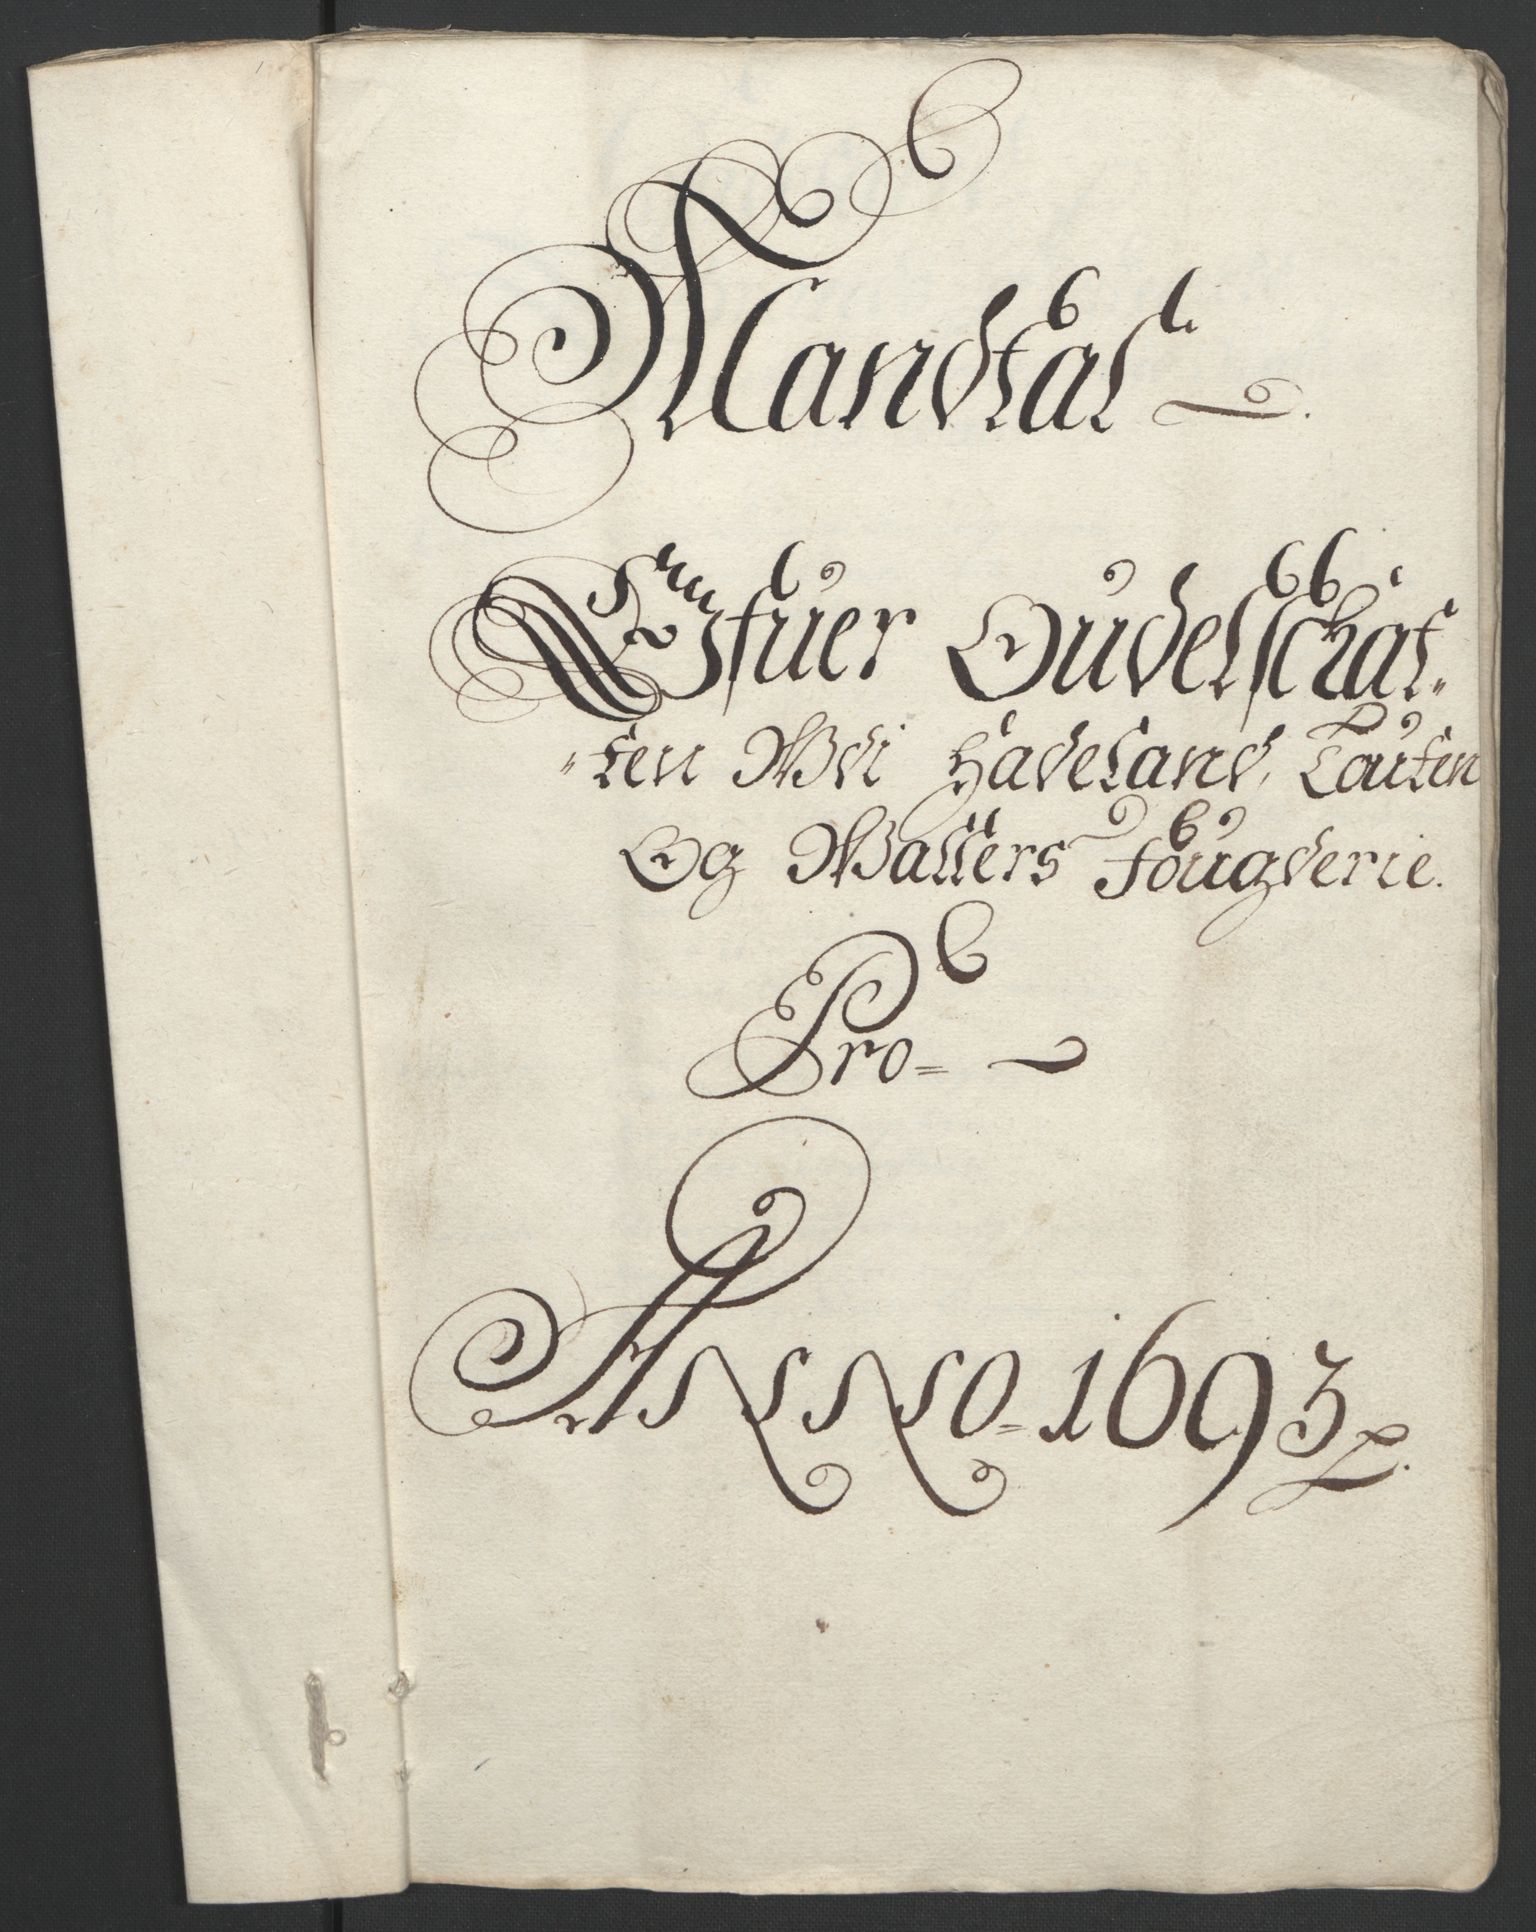 Mandtal
Ofuer Oudelskat„
„ten Udi Hadeland, Touten
Og Walders fougderie.
Pro=
ANNO= 1693